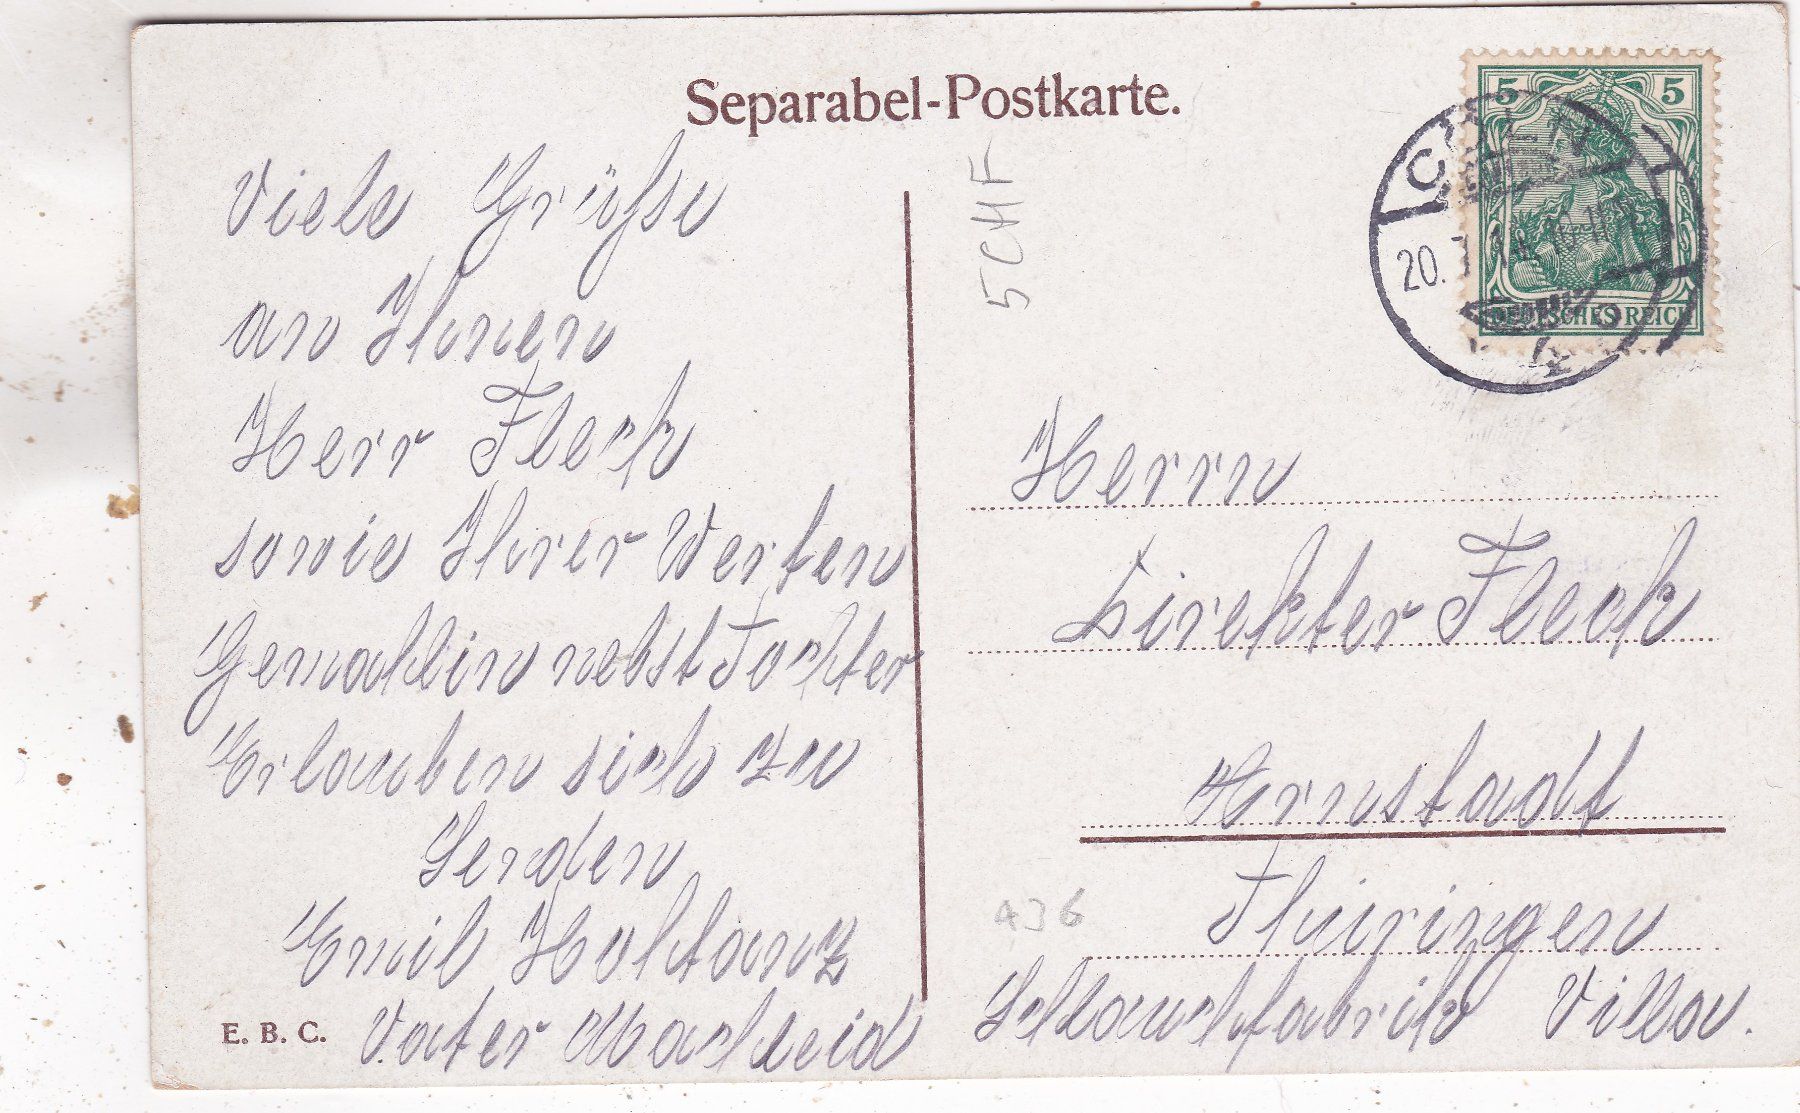 Separabel-Postkarte.
5 5
DEUTSCHES REICH
20.
5 CHF
Viele Grüsse
an Ihnen
Herr Fleck
sowie Ihrer Werten
Gemahlin nebst Tochter
Erlauben sich zu
Senden
Emil Holtanz
Vater Macheid
E. B. C.
Herrn
Direkter Fleck
Arnstadt
Thüringen
436
Schlauchfabrik Villa.